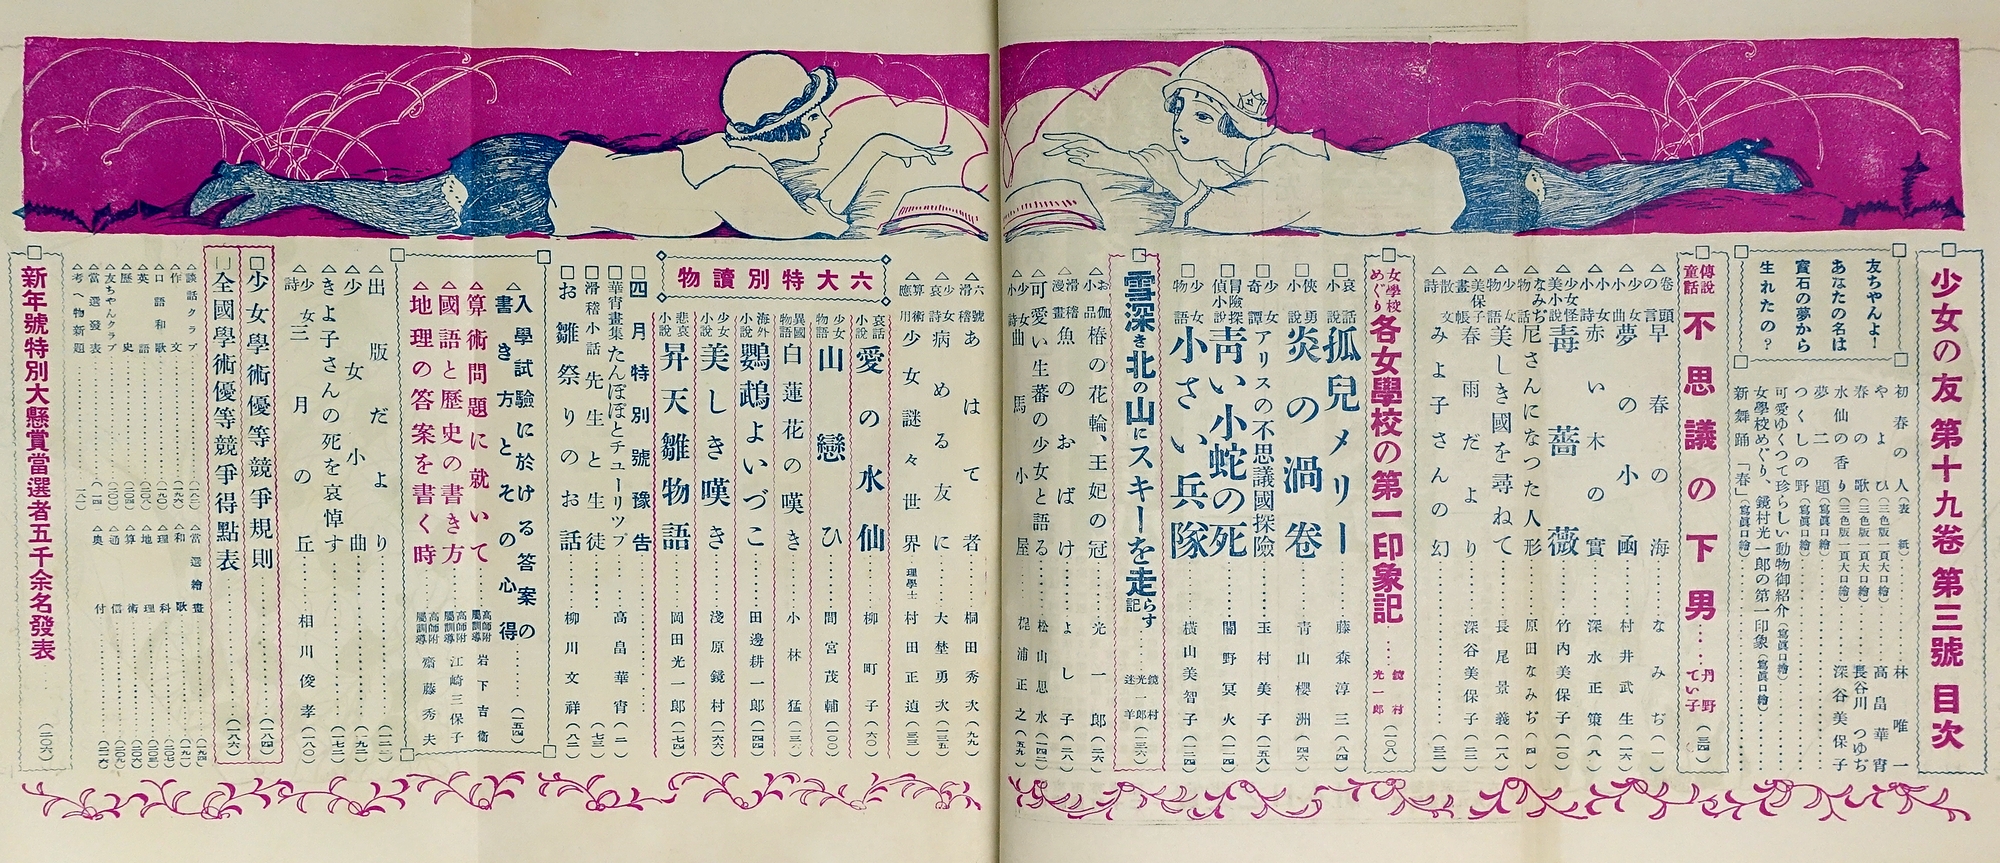 少女の友 第十九卷 第三號 目次
初春の人(表紙)……林唯一
やよひ(三色版一頁大口繪)……高畠華宵
春の歌(三色版一頁大口繪)……長谷川つゆぢ
水仙の香り(二色版一頁大口繪)……深谷美保子
夢二題(寫眞口繪)
つくしの野(寫眞口繪)
可愛ゆくつて珍らしい動物御紹介(寫眞口繪)
女學校めぐり、鏡村光一郎の第一印象(寫眞口繪)
新舞踊「春」(寫眞口繪)
友ちやんよ!
あなたの名は
寳石の夢から
生れたの?
傳說童話 不思議の下男……丹野てい子(三四)
卷頭の言 早春の海……なみぢ(一)
少女小曲 夢の小凾……村井武生(一六)
小詩 赤い木の實……深水正策(八)
少女怪美小說 毒薔薇……竹内美保子(一〇)
なみぢ夜話 尼さんになつた人形……原田なみぢ(四)
少女物語 美しき國を尋ねて……長尾景義(一八)
美保子畫帳 春雨だより……深谷美保子(三二)
散文詩 みよ子さんの幻……(三二)
女學校めぐり 各女學校の第一印象記……鏡村光一郎(一〇八)
哀話小說 孤兒メリー……藤森淳三(八四)
俠勇小說 炎の渦卷……青山櫻洲(四六)
少女奇譚 アリスの不思議國探險……玉村美子(五八)
冒險探偵小說 靑い小蛇の死……闇野冥火(一一四)
少女物語 小さい兵隊……橫山美智子(一二四)
雪深き北の山にスキーを走らす記……鏡村光一郎 迷羊(一三六)
お伽小品 椿の花輪、王妃の冠……光一郎(二六)
滑稽漫畫 魚のおばけ……よし子(二八)
可愛い生蕃の少女と語る……松山思水(一四二)
少女小詩曲 馬小屋……梶浦正之(五九)
六號滑 あはて者……桐田秀次(九九)
少女哀詩 病める友に……大埜勇次(一三五)
算術應用 少女謎々世界……理學士 村田正遉(三三)
六大特別讀物
哀話小說 愛の水仙……柳町子(六〇)
少女物語 山戀ひ……間宮茂輔(一〇〇)
異國物語 白蓮花の嘆き……小林猛(一三〇)
海外小說 鸚鵡よいづこ……田邊耕一郎(一四四)
少女小說 美しき嘆き……淺原鏡村(一六六)
悲哀小說 昇天雛物語……岡田光一郎(七四)
四月特別號豫告……
華宵畫集 たんぽぽとチューリップ……高畠華宵(二)
滑稽小話 先生と生徒……(七三)
お雛祭りのお話……柳川文祥(八二)
入學試驗に於ける答案の書き方とその心得……(一五四)
算術問題に就いて……高師附屬訓導 岩下吉衞
國語と歷史の書き方……高師附屬訓導 江崎三保子
地理の答案を書く時……高師附屬訓導 齋藤秀夫
出版だより……(一二三)
少女小曲……(一九二)
きよ子さんの死を哀悼す……(一七二)
少女詩 三月の丘……相川俊孝(一八〇)
少女學術優等競爭規則……(一八四)
全國學術優等競爭得點表……(一八六)
談話クラブ……(一八二)
作文……(一九六)
口語和歌……(一九〇)
英語……(一〇八)
歷史……(二〇四)
友ちやんクラブ……(二〇〇)
當選發表……(一一四)
考へ物新題……(一八一)
當選繪畫……(一九四)
和歌……(一九一)
理科……(二〇七)
地理……(二〇五)
算術……(二〇九)
通信……
奧付……
新年號特別大懸賞當選者五千余名發表……(二〇六)